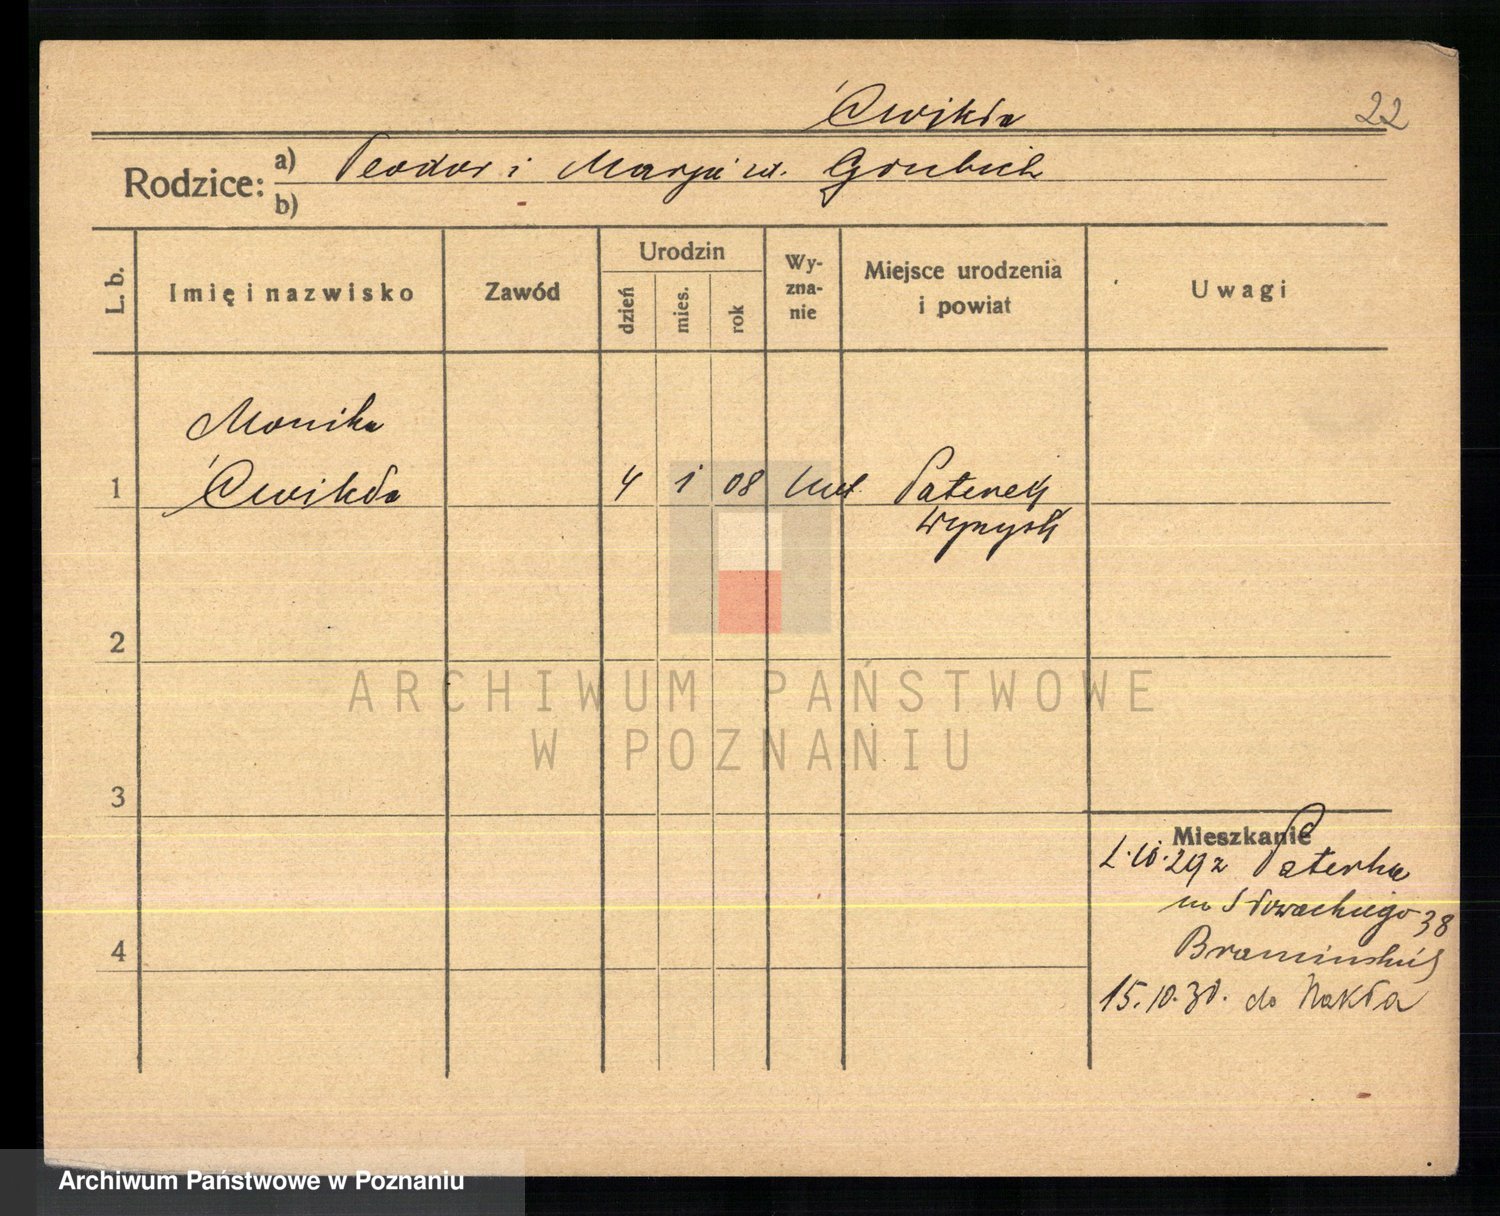 Ćwikła
22
Rodzice: a) Teodor i Marja ur. Grubich
b)
L. b.
Imię i nazwisko
Zawód
Urodzin
dzień
mies.
rok
Wy-
zna-
nie
Miejsce urodzenia
i powiat
Uwagi
Monika
1 Ćwikła 4 1 08 Paterek
Wyrzysk
2
ARCHIWUM PAŃSTWOWE
W POZNANIU
3
Mieszkanie
z Paterka
Słowackiego 38
4
15.10.30. do Nakła
Archiwum Państwowe w Poznaniu